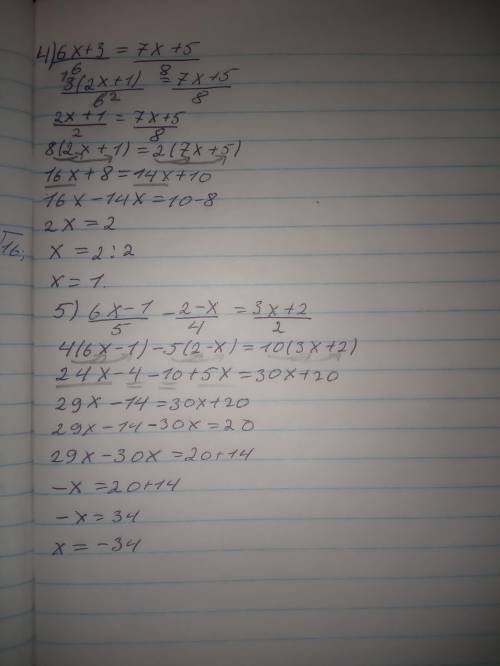 4) (6x+3)/6 = (7x+5)/8
3(2x+1)/6 2 = (7x+5)/8
(2x+1)/2 = (7x+5)/8
8(2x+1)=2(7x+5)
16x+8=14x+10
16x-14x=10-8
2x=2
16;
x=2:2
x=1.
5) (6x-1)/5 - (2-x)/4 = (3x+2)/2
4(6x-1)-5(2-x)=10(3x+2)
24x-4-10+5x=30x+20
29x-14=30x+20
29x-14-30x=20
29x-30x=20+14
-x=20+14
-x=34
x=-34